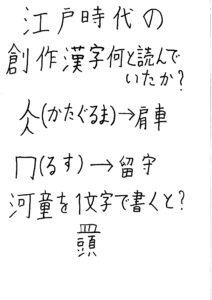 江戸時代の
創作漢字何と読んで
いたか?
仌(かたぐるま)→肩車
冂(るす)→留守
河童を1文字で書くと?